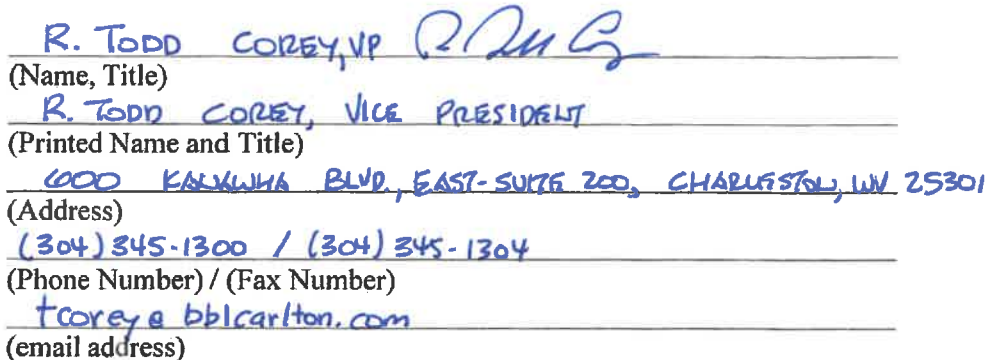 R. TODD COREY, VP
(Name, Title)
R. TODD COREY, VICE PRESIDENT
(Printed Name and Title)
600 KANAWHA BLVD., EAST-SUITE 200, CHARLESTON, WV 25301
(Address)
(304) 345-1300 / (304) 345-1304
(Phone Number) / (Fax Number)
tcorey@bblcarlton.com
(email address)